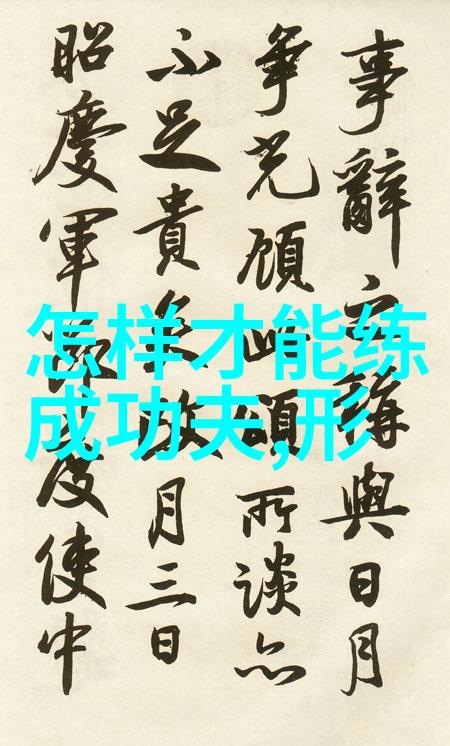 事辭與日月
爭光顧所談亦
不足貴月三日
昭慶軍度使中
怎样才能练
成功夫,形